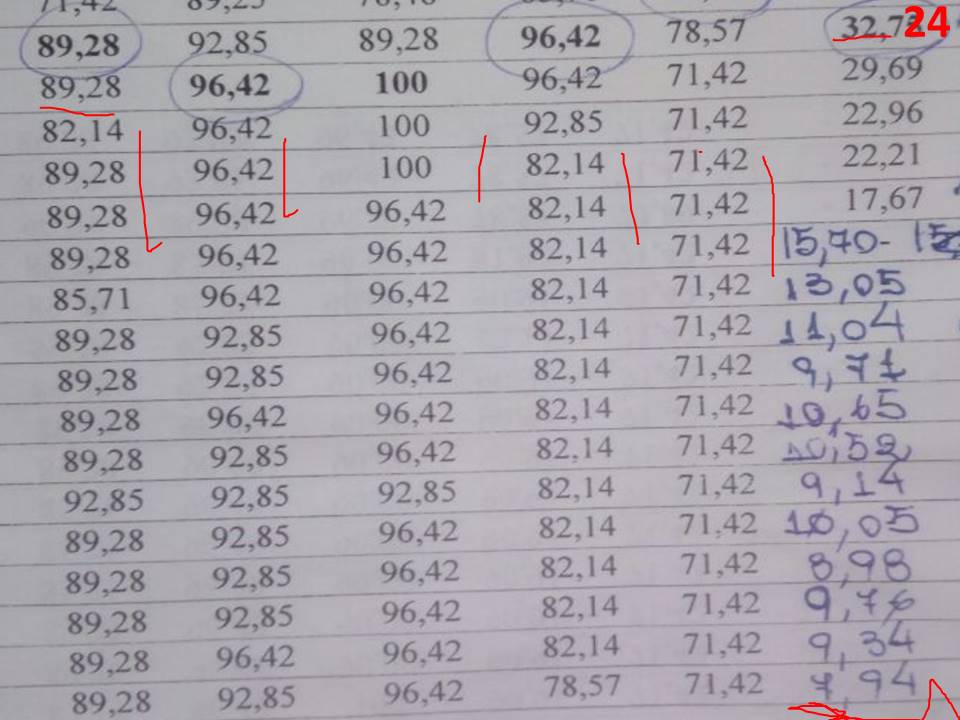 71,42 89,25
89,28 92,85 89,28 96,42 78,57 32,7 24
89,28 96,42 100 96,42 71,42 29,69
82,14 96,42 100 92,85 71,42 22,96
89,28 96,42 100 82,14 71,42 22,21
89,28 96,42 96,42 82,14 71,42 17,67
89,28 96,42 96,42 82,14 71,42 15,70-
85,71 96,42 96,42 82,14 71,42 13,05
89,28 92,85 96,42 82,14 71,42 11,04
89,28 92,85 96,42 82,14 71,42 9,71
89,28 96,42 96,42 82,14 71,42 10,65
89,28 92,85 96,42 82,14 71,42 10,52
92,85 92,85 92,85 82,14 71,42 9,14
89,28 92,85 96,42 82,14 71,42 10,05
89,28 92,85 96,42 82,14 71,42 8,98
89,28 92,85 96,42 82,14 71,42 9,76
89,28 96,42 96,42 82,14 71,42 9,34
89,28 92,85 96,42 78,57 71,42 7,94